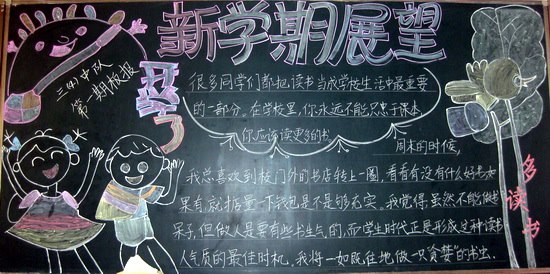 新学期展望
三(4)中队
第一期板报
开学了
很多同学们都把读书当成学校生活中最重要
的一部分。在学校里,你永远不能只忠于课本,
你应该读更多的书
周末的时候,
我总喜欢到校门外的书店转上一圈,看看有没有什么好书,如
果有就掂量一下钱包是不是够充实。我觉得虽然不能做书
呆子,但做人总要有些书生气的,而学生时代正是形成这种读书
人气质的最佳时机。我将一如既往地做一只"贪婪"的书虫。
多读书